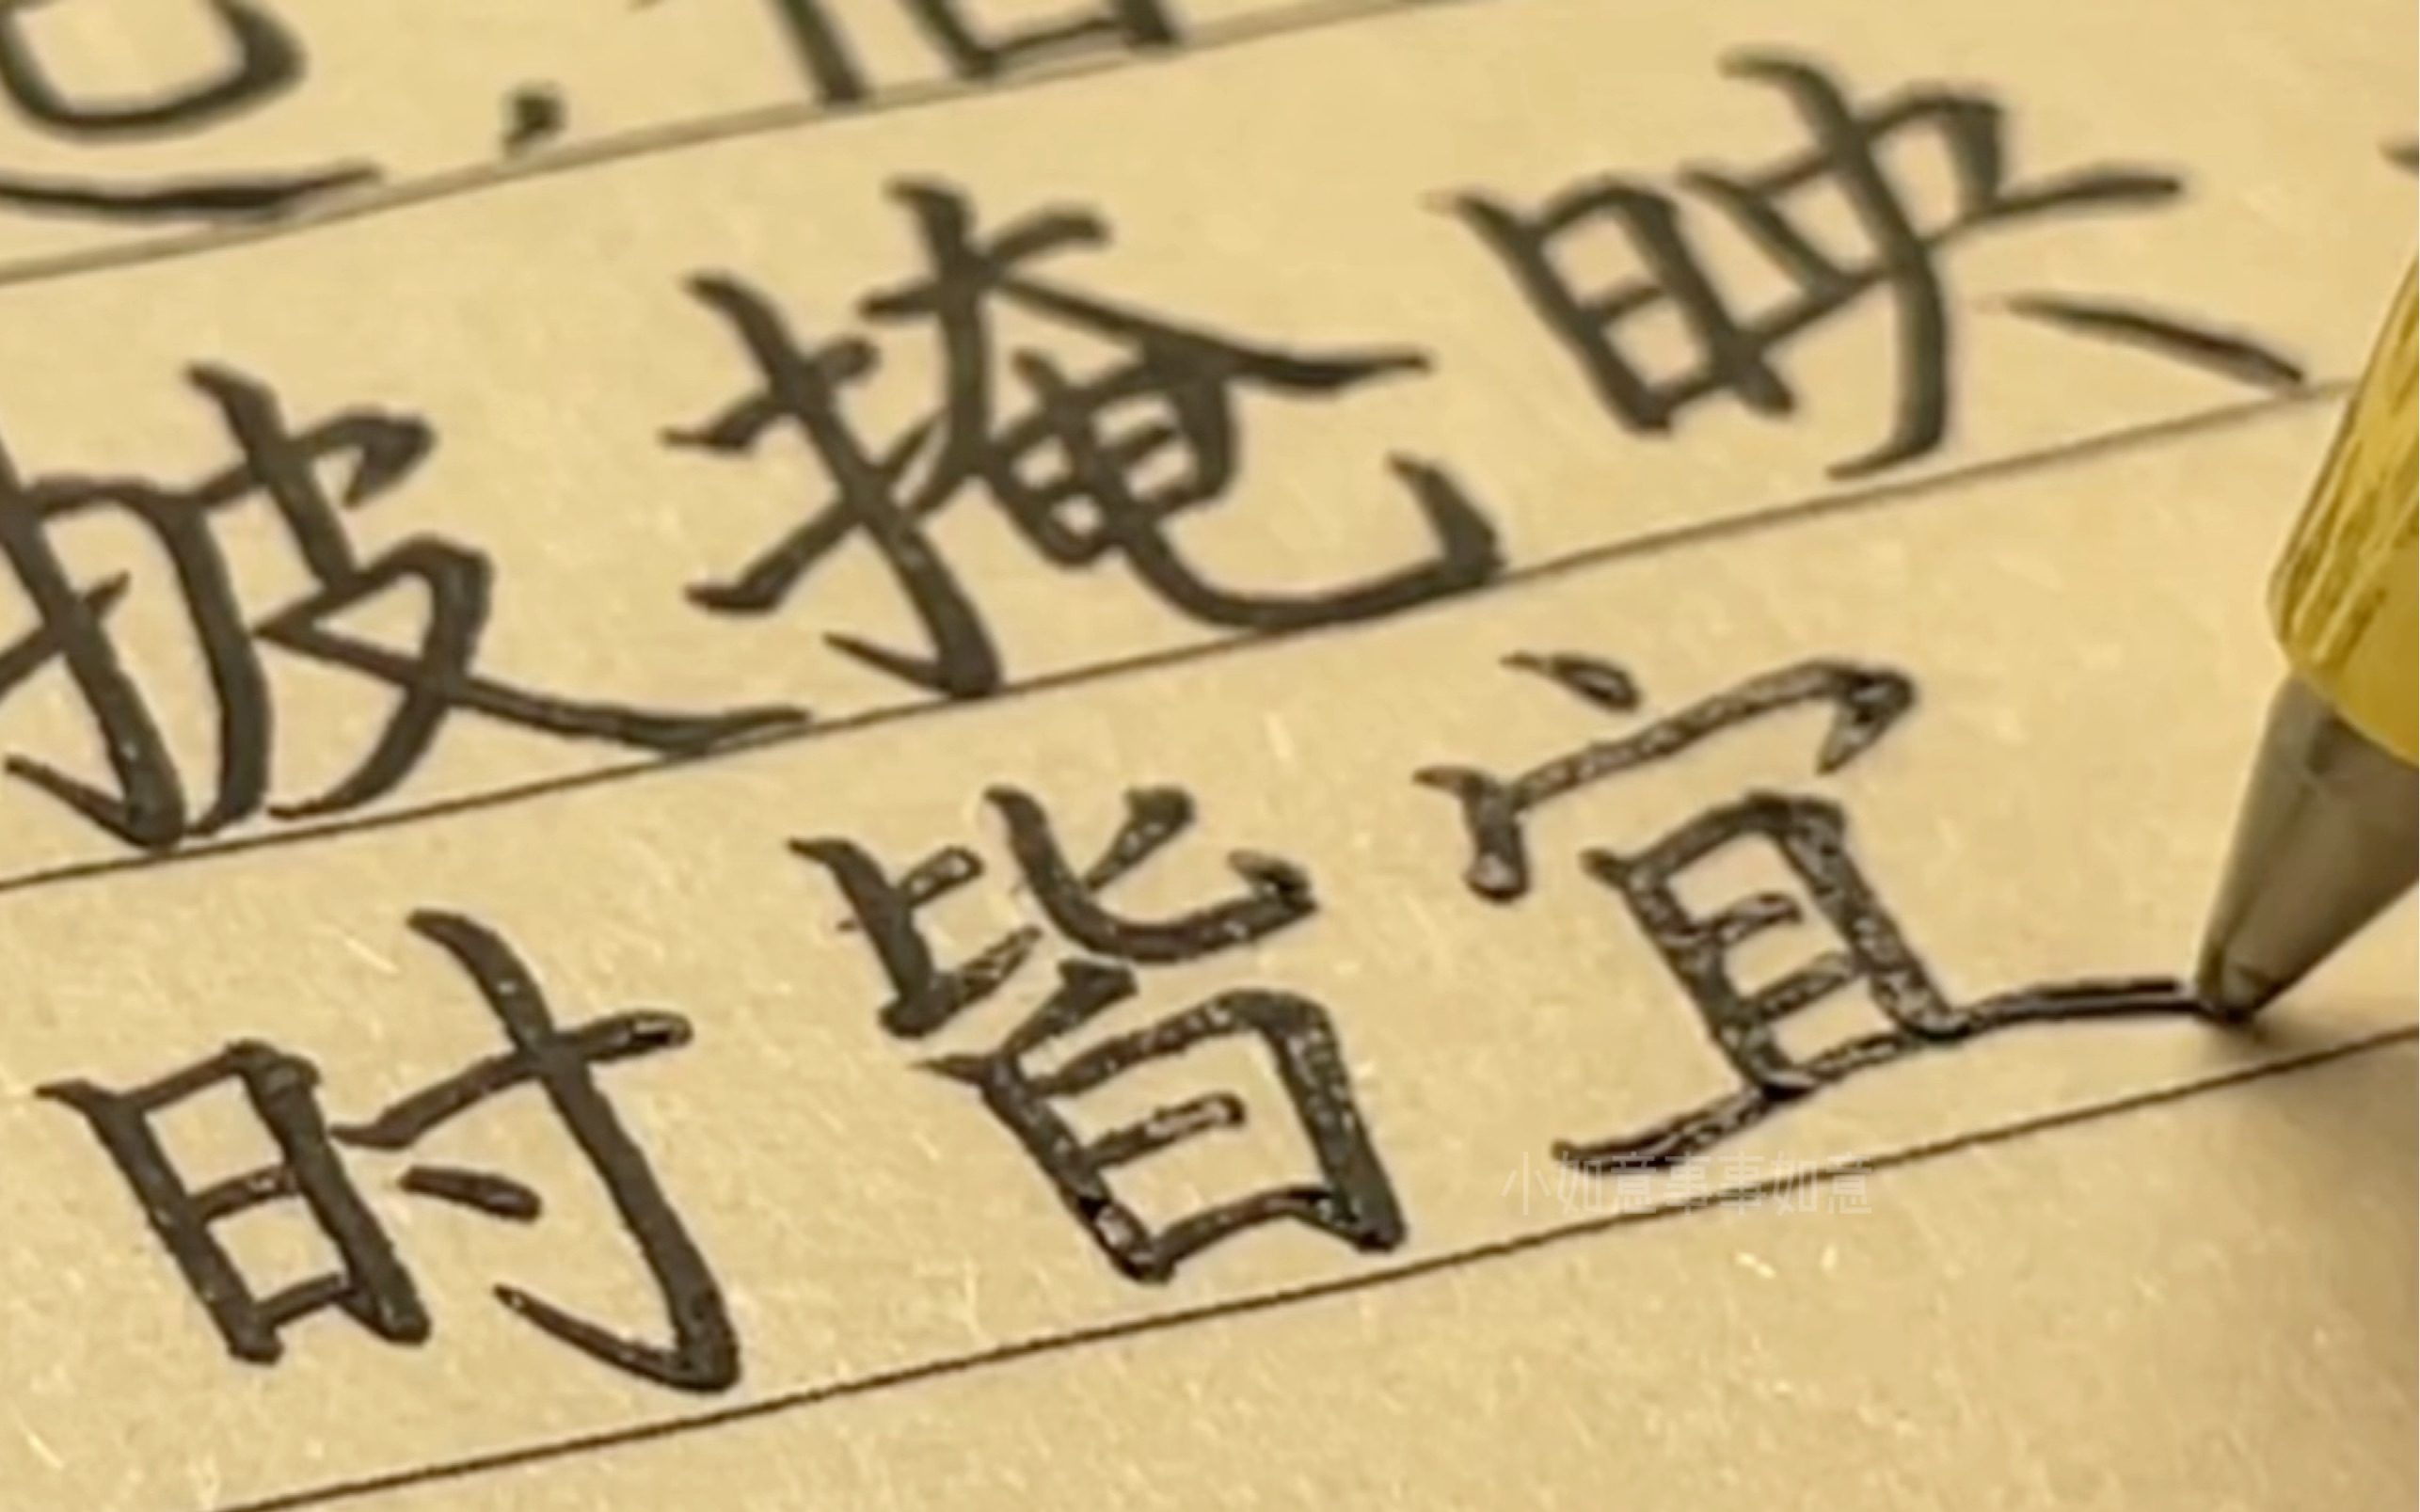 披掩映
时皆宜
小如意事事如意